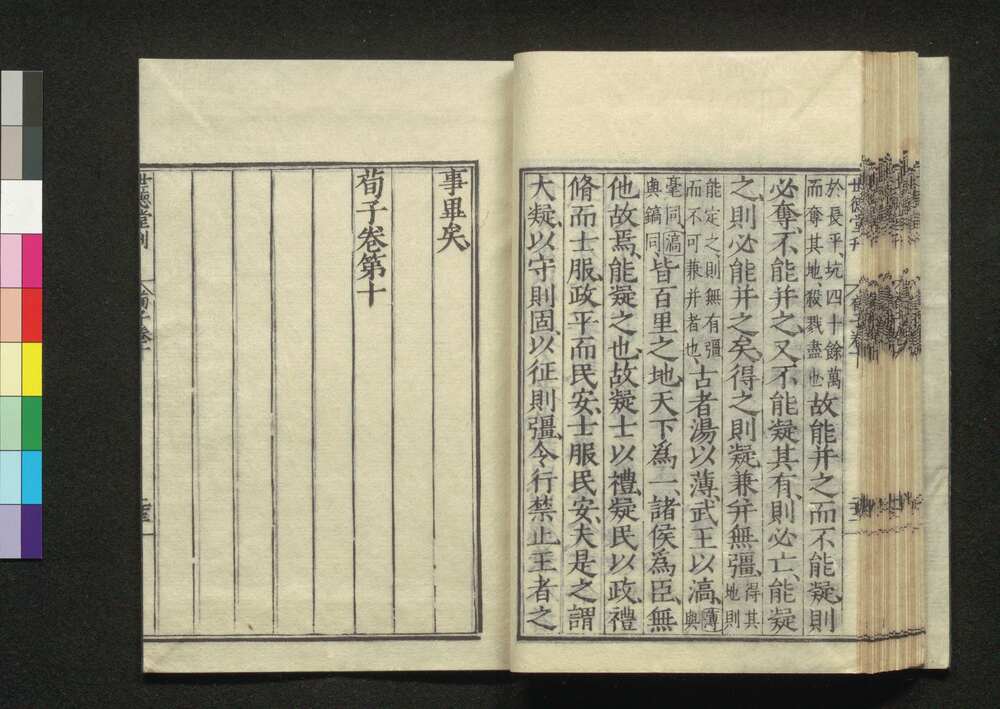 世德堂刊
於長平、坑四十餘萬
而奪其地、殺戮盡也
故能并之而不能凝、則
必奪、不能并之、又不能凝其有、則必亡、能凝
之、則必能并之矣、得之則凝、兼并無彊、得其
地則
能定之、則無有彊
而不可兼并者也、
古者湯以薄、武王以滈、薄
與
亳同、滈
與鎬同
皆百里之地、天下爲一、諸侯爲臣、無
他故焉、能凝之也、故凝士以禮、凝民以政、禮
脩而士服、政平而民安、士服民安、夫是之謂
大凝、以守則固、以征則彊、令行禁止、王者之
事畢矣、
荀子卷第十
世德堂刊
荀子卷十